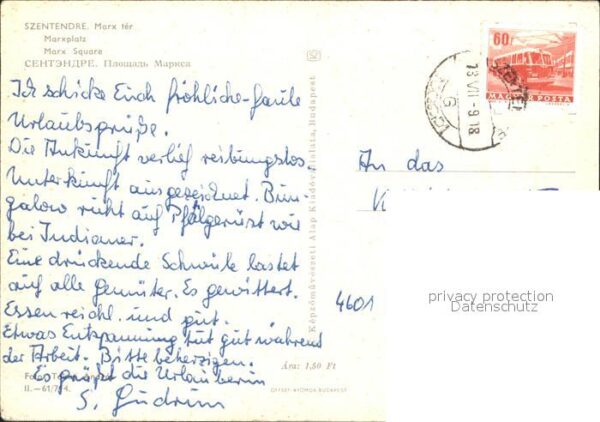 SZENTENDRE. Marx tér
Marxplatz
Marx Square
СЕНТЭНДРЕ. Площадь Маркса
Ich schicke Euch fröhliche-faule
Urlaubsgrüße.
Die Ankunft verlief reibungslos.
Unterkunft ausgezeichnet. Bun-
galow ruht auf Pfahlgerüst wie
bei Indianer.
Eine drückende Schwüle lastet
auf alle gemüter. Es gewittert.
Essen reichl. und gut.
Etwas Entspannung tut gut während
der Arbeit. Bitte beherzigen.
Es grüßt die Urlauberin
S. Gudrun
Foto:
II.—61/
Képzőművészeti Alap Kiadóvállalata, Budapest
Ára: 1,50 Ft
OFFSET-NYOMDA BUDAPEST
60f
MAGYAR POSTA
13 VII - 9.18
An das
4601
privacy protection
Datenschutz